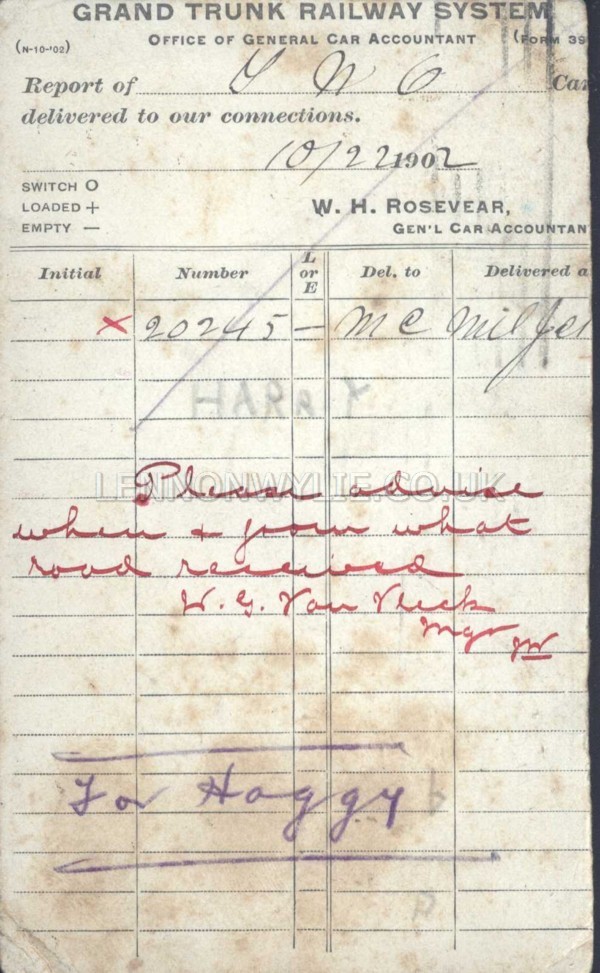 GRAND TRUNK RAILWAY SYSTEM
OFFICE OF GENERAL CAR ACCOUNTANT
(N-10-'02)
(FORM 39
Report of W Car
delivered to our connections.
10/22 1902
SWITCH O
LOADED +
EMPTY —
W. H. ROSEVEAR,
GEN'L CAR ACCOUNTAN
Initial Number L or E Del. to Delivered a
x 20245 — M C
LENNONWYLIE.CO.UK
Please advise
when + from what
road received
W. G. Van Vleck
Mgr
For Haggy